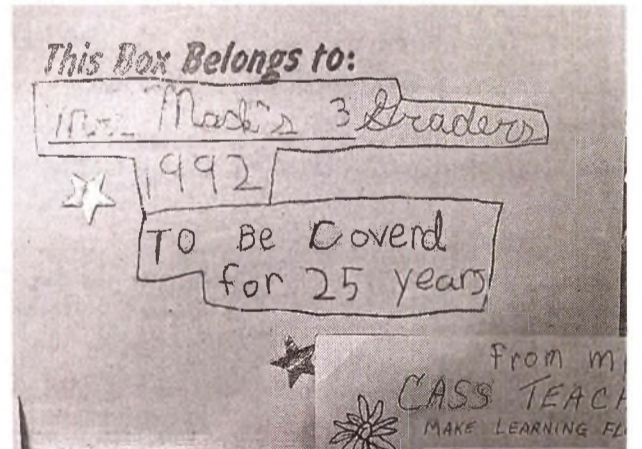 This Box Belongs to:
Mrs. "Mask"s 3 Graders
1992
TO Be Coverd
for 25 years
from m
CASS TEACH
MAKE LEARNING FL